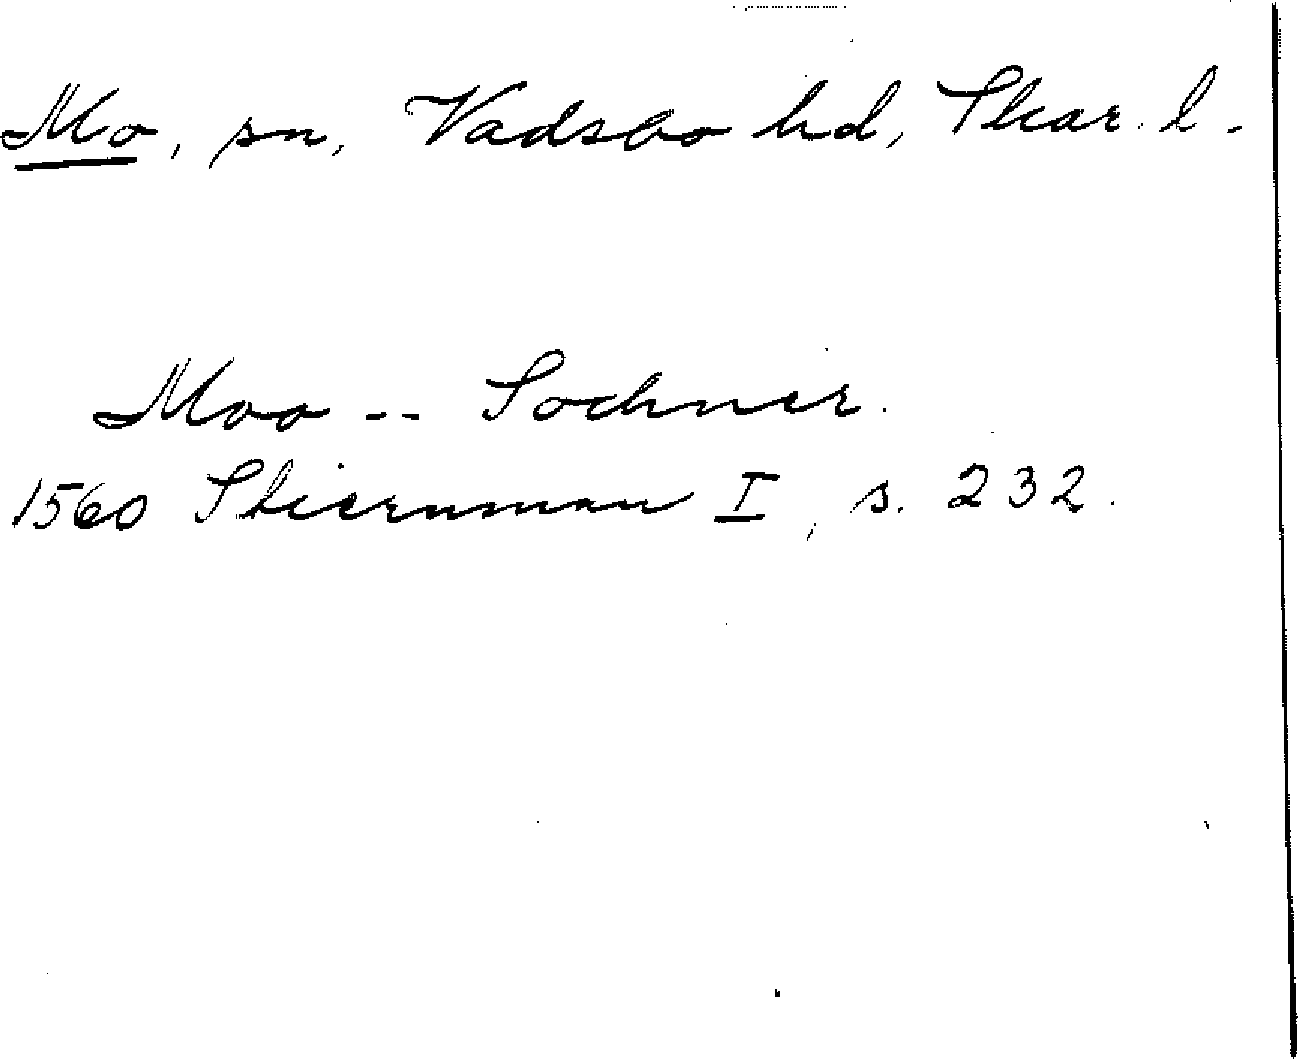 Mo, sn, Vadsbo hd, Skar. l.
Moo -- Sochner.
1560 Stiernman I, s. 232.